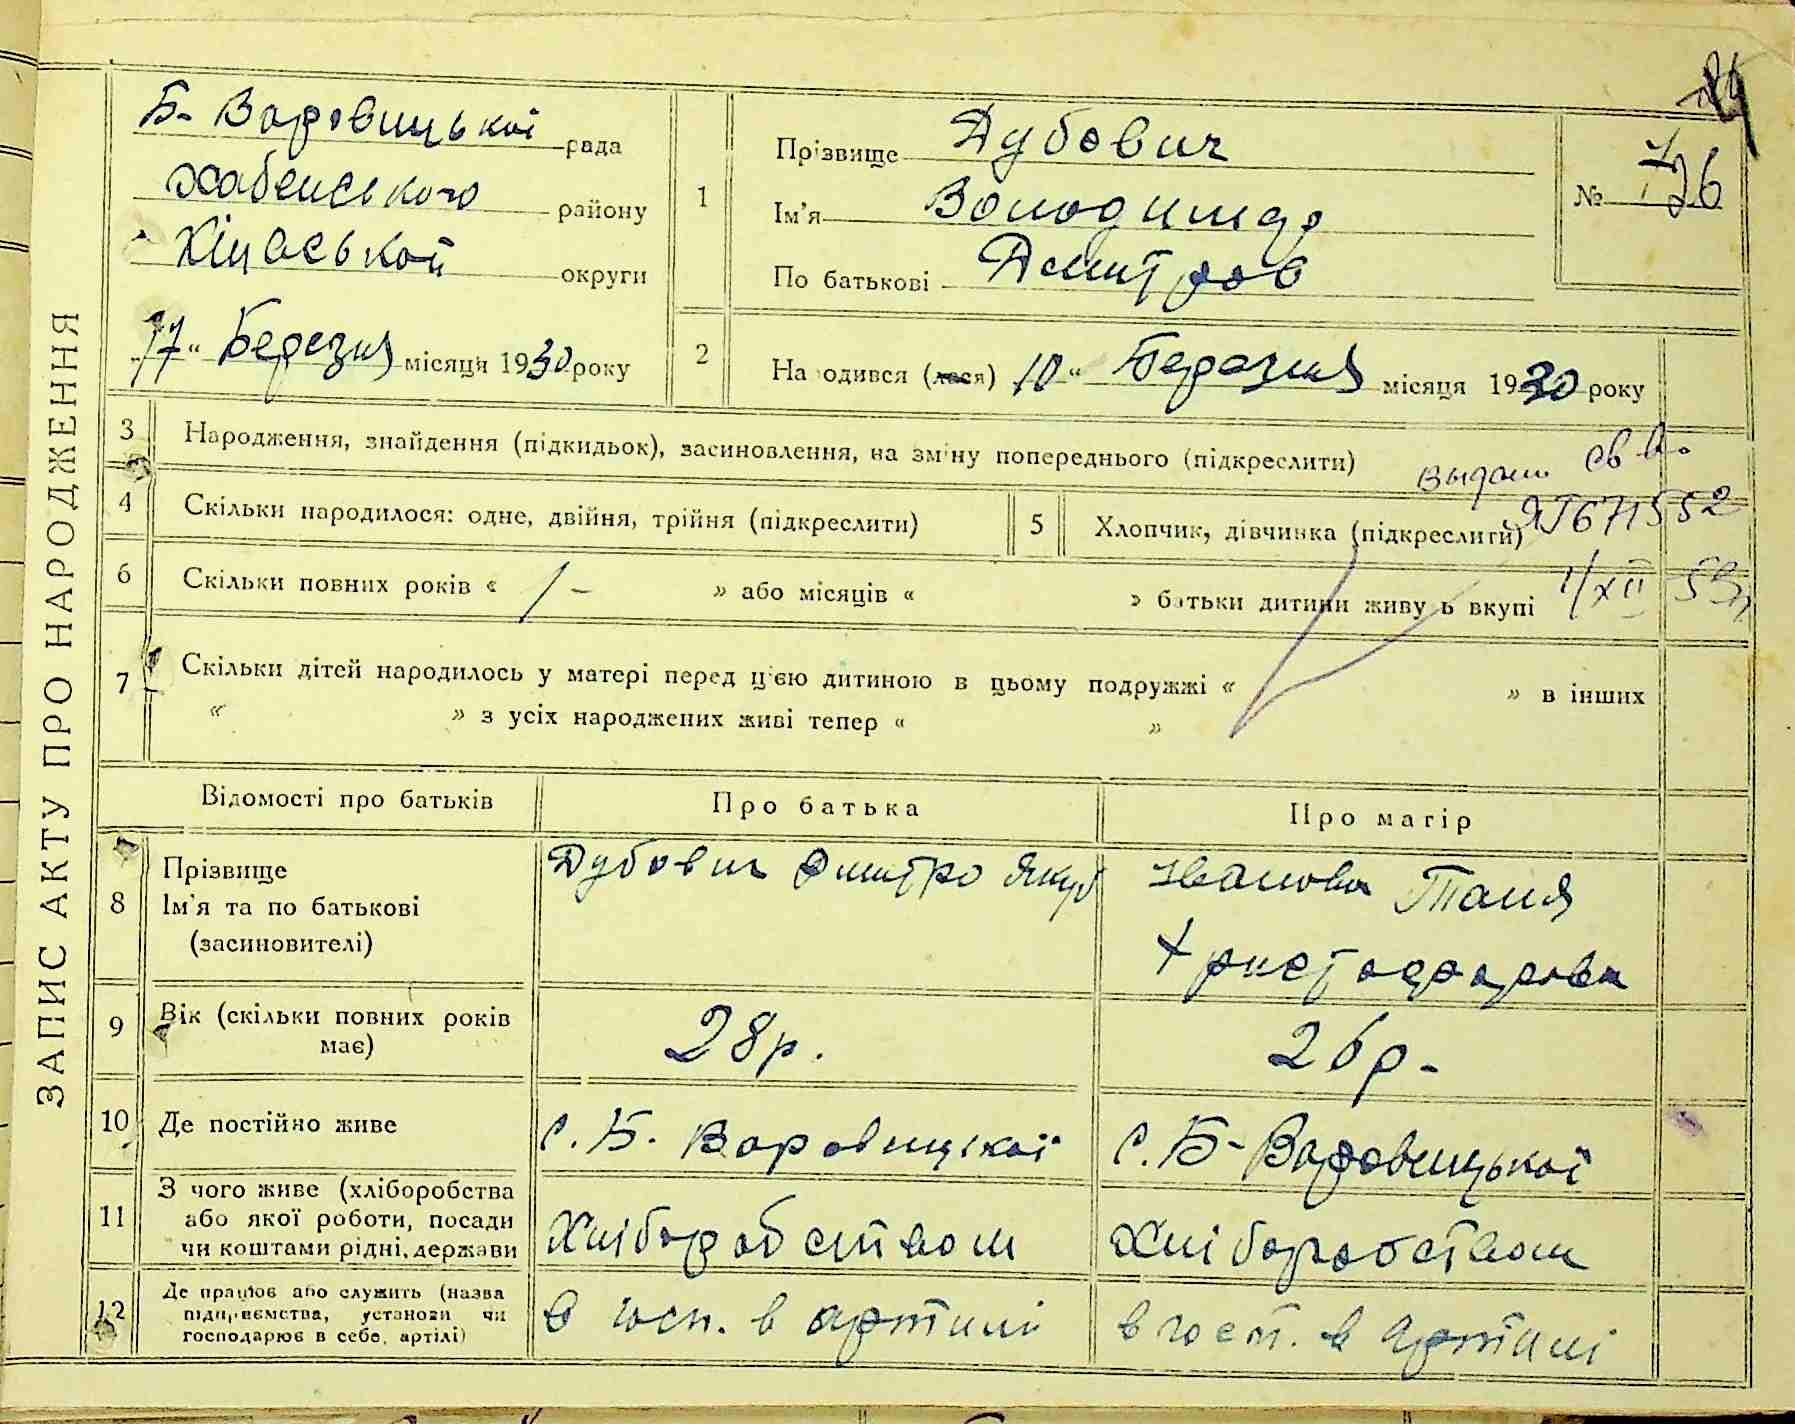 ЗАПИС АКТУ ПРО НАРОДЖЕННЯ
Б. Воровицької рада
Хабенського району
округи
17 " Березня місяця 1930 року
1
Прізвище Дубович
Ім'я Володимир
По батькові Дмитров
№ 26
2
Народився (лася) 10 " Березня місяця 1930 року
3 Народження, знайдення (підкидьок), засиновлення, на зміну попереднього (підкреслити)
4 Скільки народилося: одне, двійня, трійня (підкреслити)
5 Хлопчик, дівчинка (підкреслити)
6 Скільки повних років « 1 - » або місяців « » батьки дитини живуть вкупі
1/XII
7 Скільки дітей народилось у матері перед цією дитиною в цьому подружжі « » в інших
« » з усіх народжених живі тепер « »
Відомості про батьків Про батька Про матір
8 Прізвище
Ім'я та по батькові
(засиновителі)
Дубович Дмитро Якув
Іванова Таня
9 Вік (скільки повних років
має)
28р.
26р.
10 Де постійно живе
с. Б. Воровицької
с. Б-Воровицької
11 З чого живе (хліборобства
або якої роботи, посади
чи коштами рідні, держави
Хліборобством
Хліборобством
12 Де працює або служить (назва
підприємства, установи чи
господарює в себе, артілі)
в госп. в артилі
в госп. в артилі